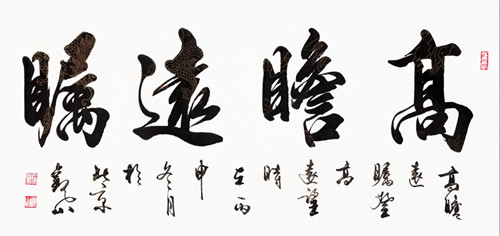 高瞻遠矚
高瞻
遠
矚登
高
遠望
時
在丙
申
冬月
於
北京